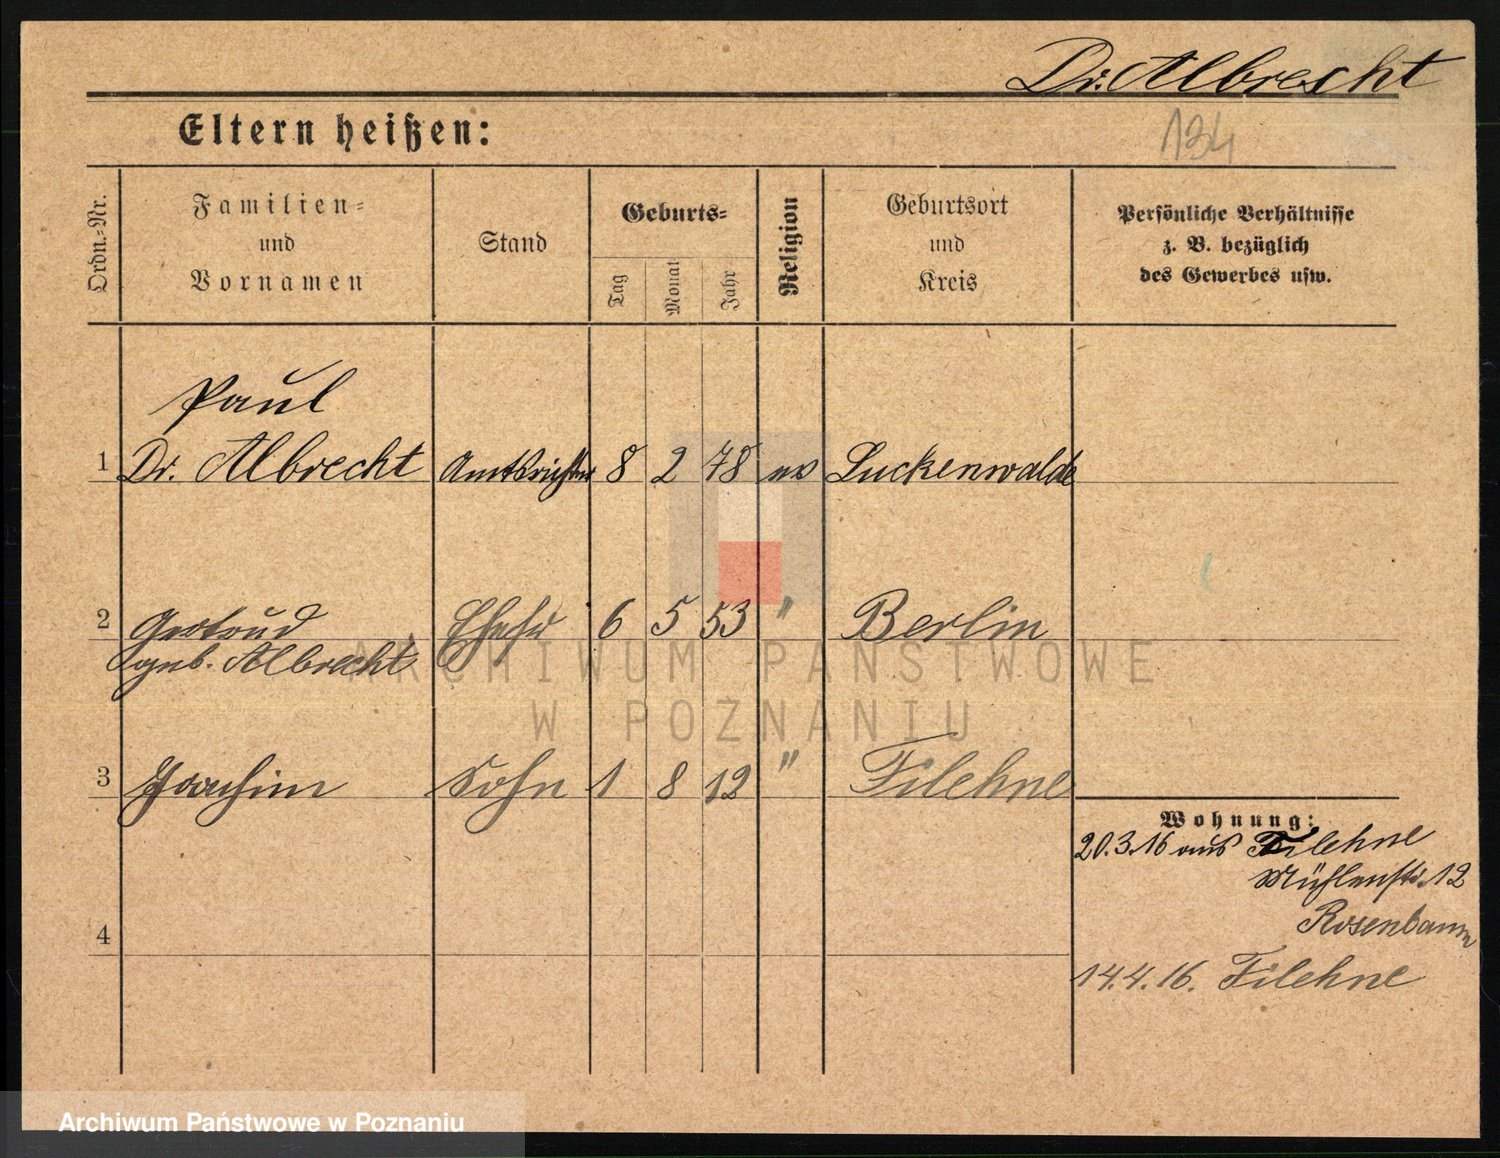 Dr. Albrecht
Eltern heißen:
134
Ordn.-Nr.
Familien-
und
Vornamen
Stand
Geburts-
Tag
Monat
Jahr
Religion
Geburtsort
und
Kreis
Persönliche Verhältnisse
z. B. bezüglich
des Gewerbes usw.
Paul
1 Dr. Albrecht Amtsrichter 8 2 78 ev Luckenwalde
2 Gertrud Ehefr 6 5 53 " Berlin
geb. Albrecht
3 Joachim Sohn 1 8 12 " Filehne
Wohnung:
20.3.16 aus Filehne
Mühlenstr. 12
Rosenbaum
4
14.4.16. Filehne
ARCHIWUM PAŃSTWOWE
W POZNANIU
Archiwum Państwowe w Poznaniu